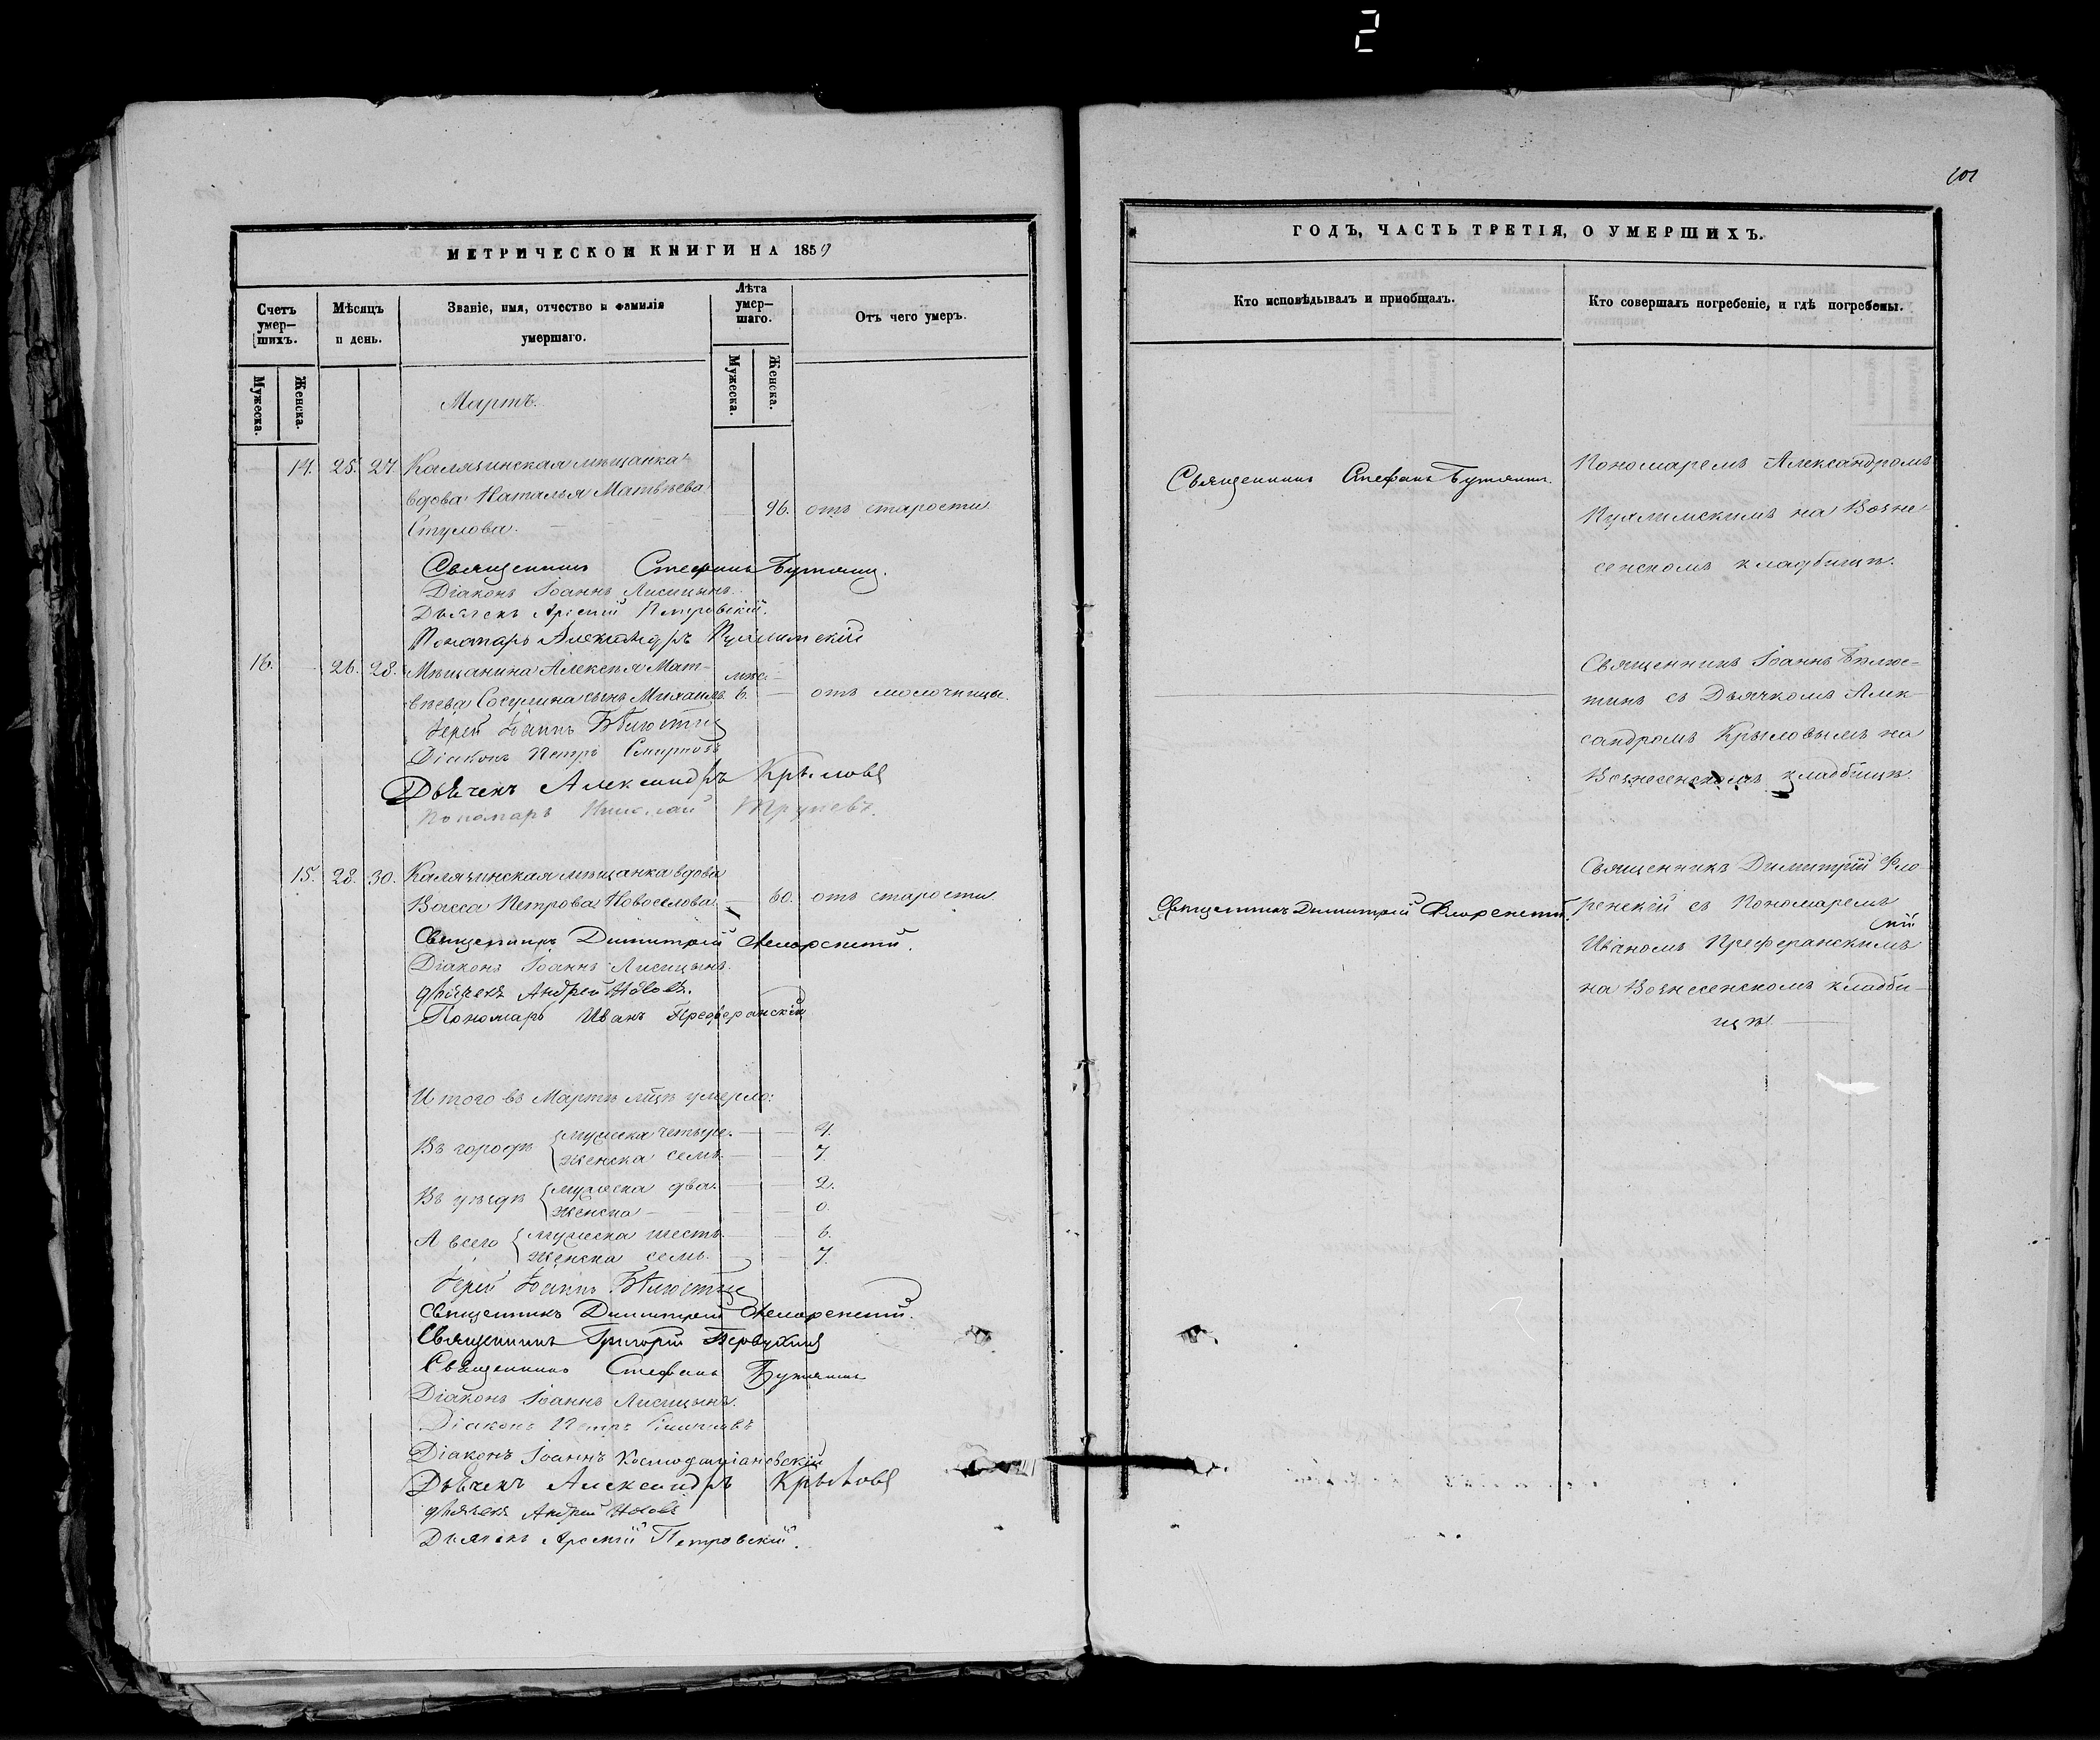 2
101
МЕТРИЧЕСКОЙ КНИГИ НА 1859
Счетъ умер-шихъ.
Мѣсяцъ и день.
Званіе, имя, отчество и фамилія умершаго.
Лѣта умер-шаго.
Отъ чего умеръ.
Мужеска.
Женска.
Мужеска.
Женска.
Мартъ.
14. 25. 27. Калязинская мѣщанка
вдова Наталья Матвѣева 96. отъ старости
Стулова.
Священникъ Стефанъ
Діаконъ Іоаннъ Лисицынъ.
Дьячекъ Арсеній Петровскій.
Пономарь Александръ
16. 26. 28. Мѣщанина Алексѣя Мат-
вѣева Сосулина сынъ Михаилъ мѣс. 6. отъ молочницы.
Іерей Іоаннъ Бѣлюстин
Діаконъ Петръ Смирновъ
Дьячекъ Александръ Крыловъ
Пономарь Николай
15. 28. 30. Калязинская мѣщанка вдова
Васса Петрова Новоселова 60. отъ старости
Священникъ Димитрій Флоренскій.
Діаконъ Іоаннъ Лисицынъ.
дьячекъ Андрей
Пономарь Иванъ Преферанскій
Итого въ Мартѣ мцѣ умерло:
Въ городѣ мужеска четыре. 4.
женска семь. 7.
Въ уѣздѣ мужеска два. 2.
женска 0.
А всего мужеска шесть. 6.
женска семь. 7.
Іерей Іоаннъ Бѣлюстин
Священникъ Димитрій Флоренскій.
Священникъ Григорій Первухинъ
Священникъ Стефанъ
Діаконъ Іоаннъ Лисицынъ.
Діаконъ Петръ Смирновъ
Діаконъ Іоаннъ Космодаміановскій
Дьячекъ Александръ Крыловъ
дьячекъ Андрей
Дьячекъ Арсеній Петровскій.
ГОДЪ, ЧАСТЬ ТРЕТІЯ, О УМЕРШИХЪ.
Кто исповѣдывалъ и пріобщалъ.
Кто совершалъ погребеніе, и гдѣ погребены.
Священникъ Стефанъ
Пономаремъ Александромъ
на Возне-
сенскомъ кладбищѣ.
Священникъ Іоаннъ Бѣлюс-
тинъ съ Дьячкомъ Алек-
сандромъ Крыловымъ на
Вознесенскомъ кладбищѣ.
Священникъ Димитрій Флоренскій.
Священникъ Димитрій Фло
ренскій съ Пономаремъ
Иваномъ Преферанскимъ
на Вознесенскомъ кладби-
щѣ.